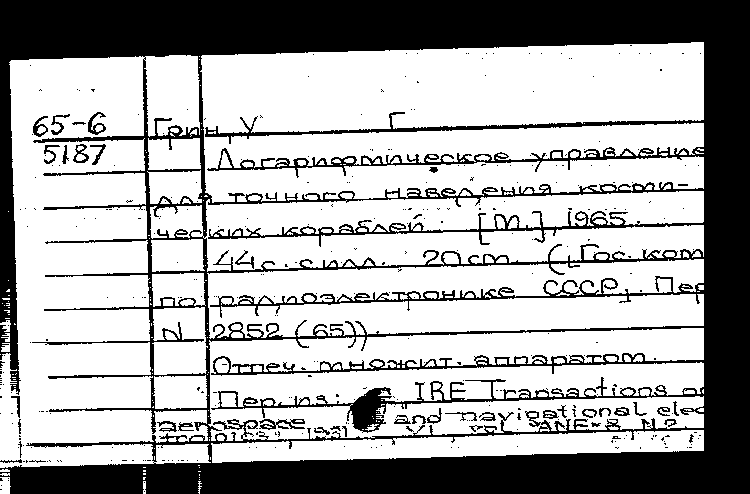 65-6
5187
Грин, У Г
Логарифмическое управление
для точного наведения косми-
ческих кораблей. [М.], 1965.
44 с. с илл. 20 см. (Гос. ком
по радиоэлектронике СССР. Пер
N 2852 (65)).
Отпеч. множит. аппаратом.
Пер. из: IRE Transactions on
aerospace and navigational elec
tronics, VI, vol. ANE-8, N 2.